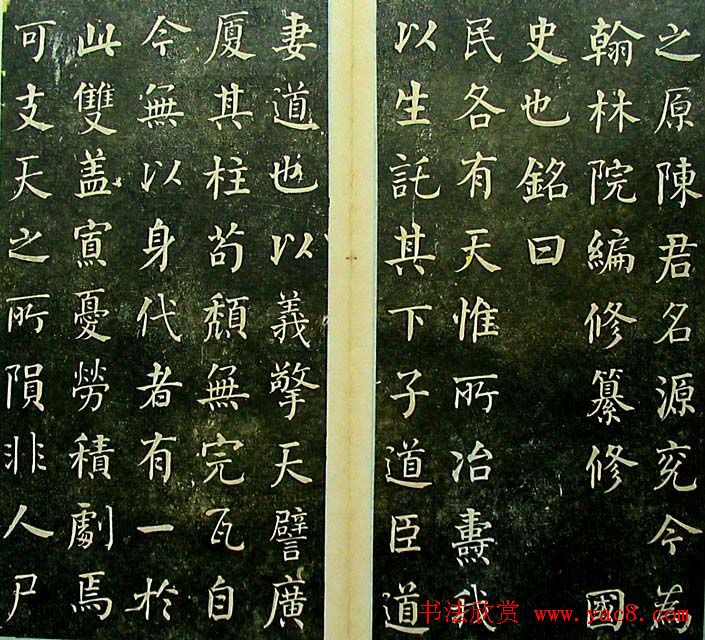 之原陳君名源兖今為
翰林院編修纂修 國
史也銘曰
民各有天惟所治燾我
以生託其下子道臣道
妻道也以義擎天譬廣
厦其柱苟頽無完瓦自
今無以身代者有一於
此雙盖寡憂勞積劇焉
可支天之所隕非人尸
书法欣赏 www.yac8.com